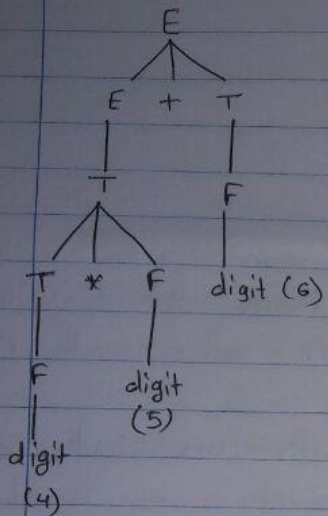 E
E + T
T F
T * F digit (6)
F digit
(5)
digit
(4)